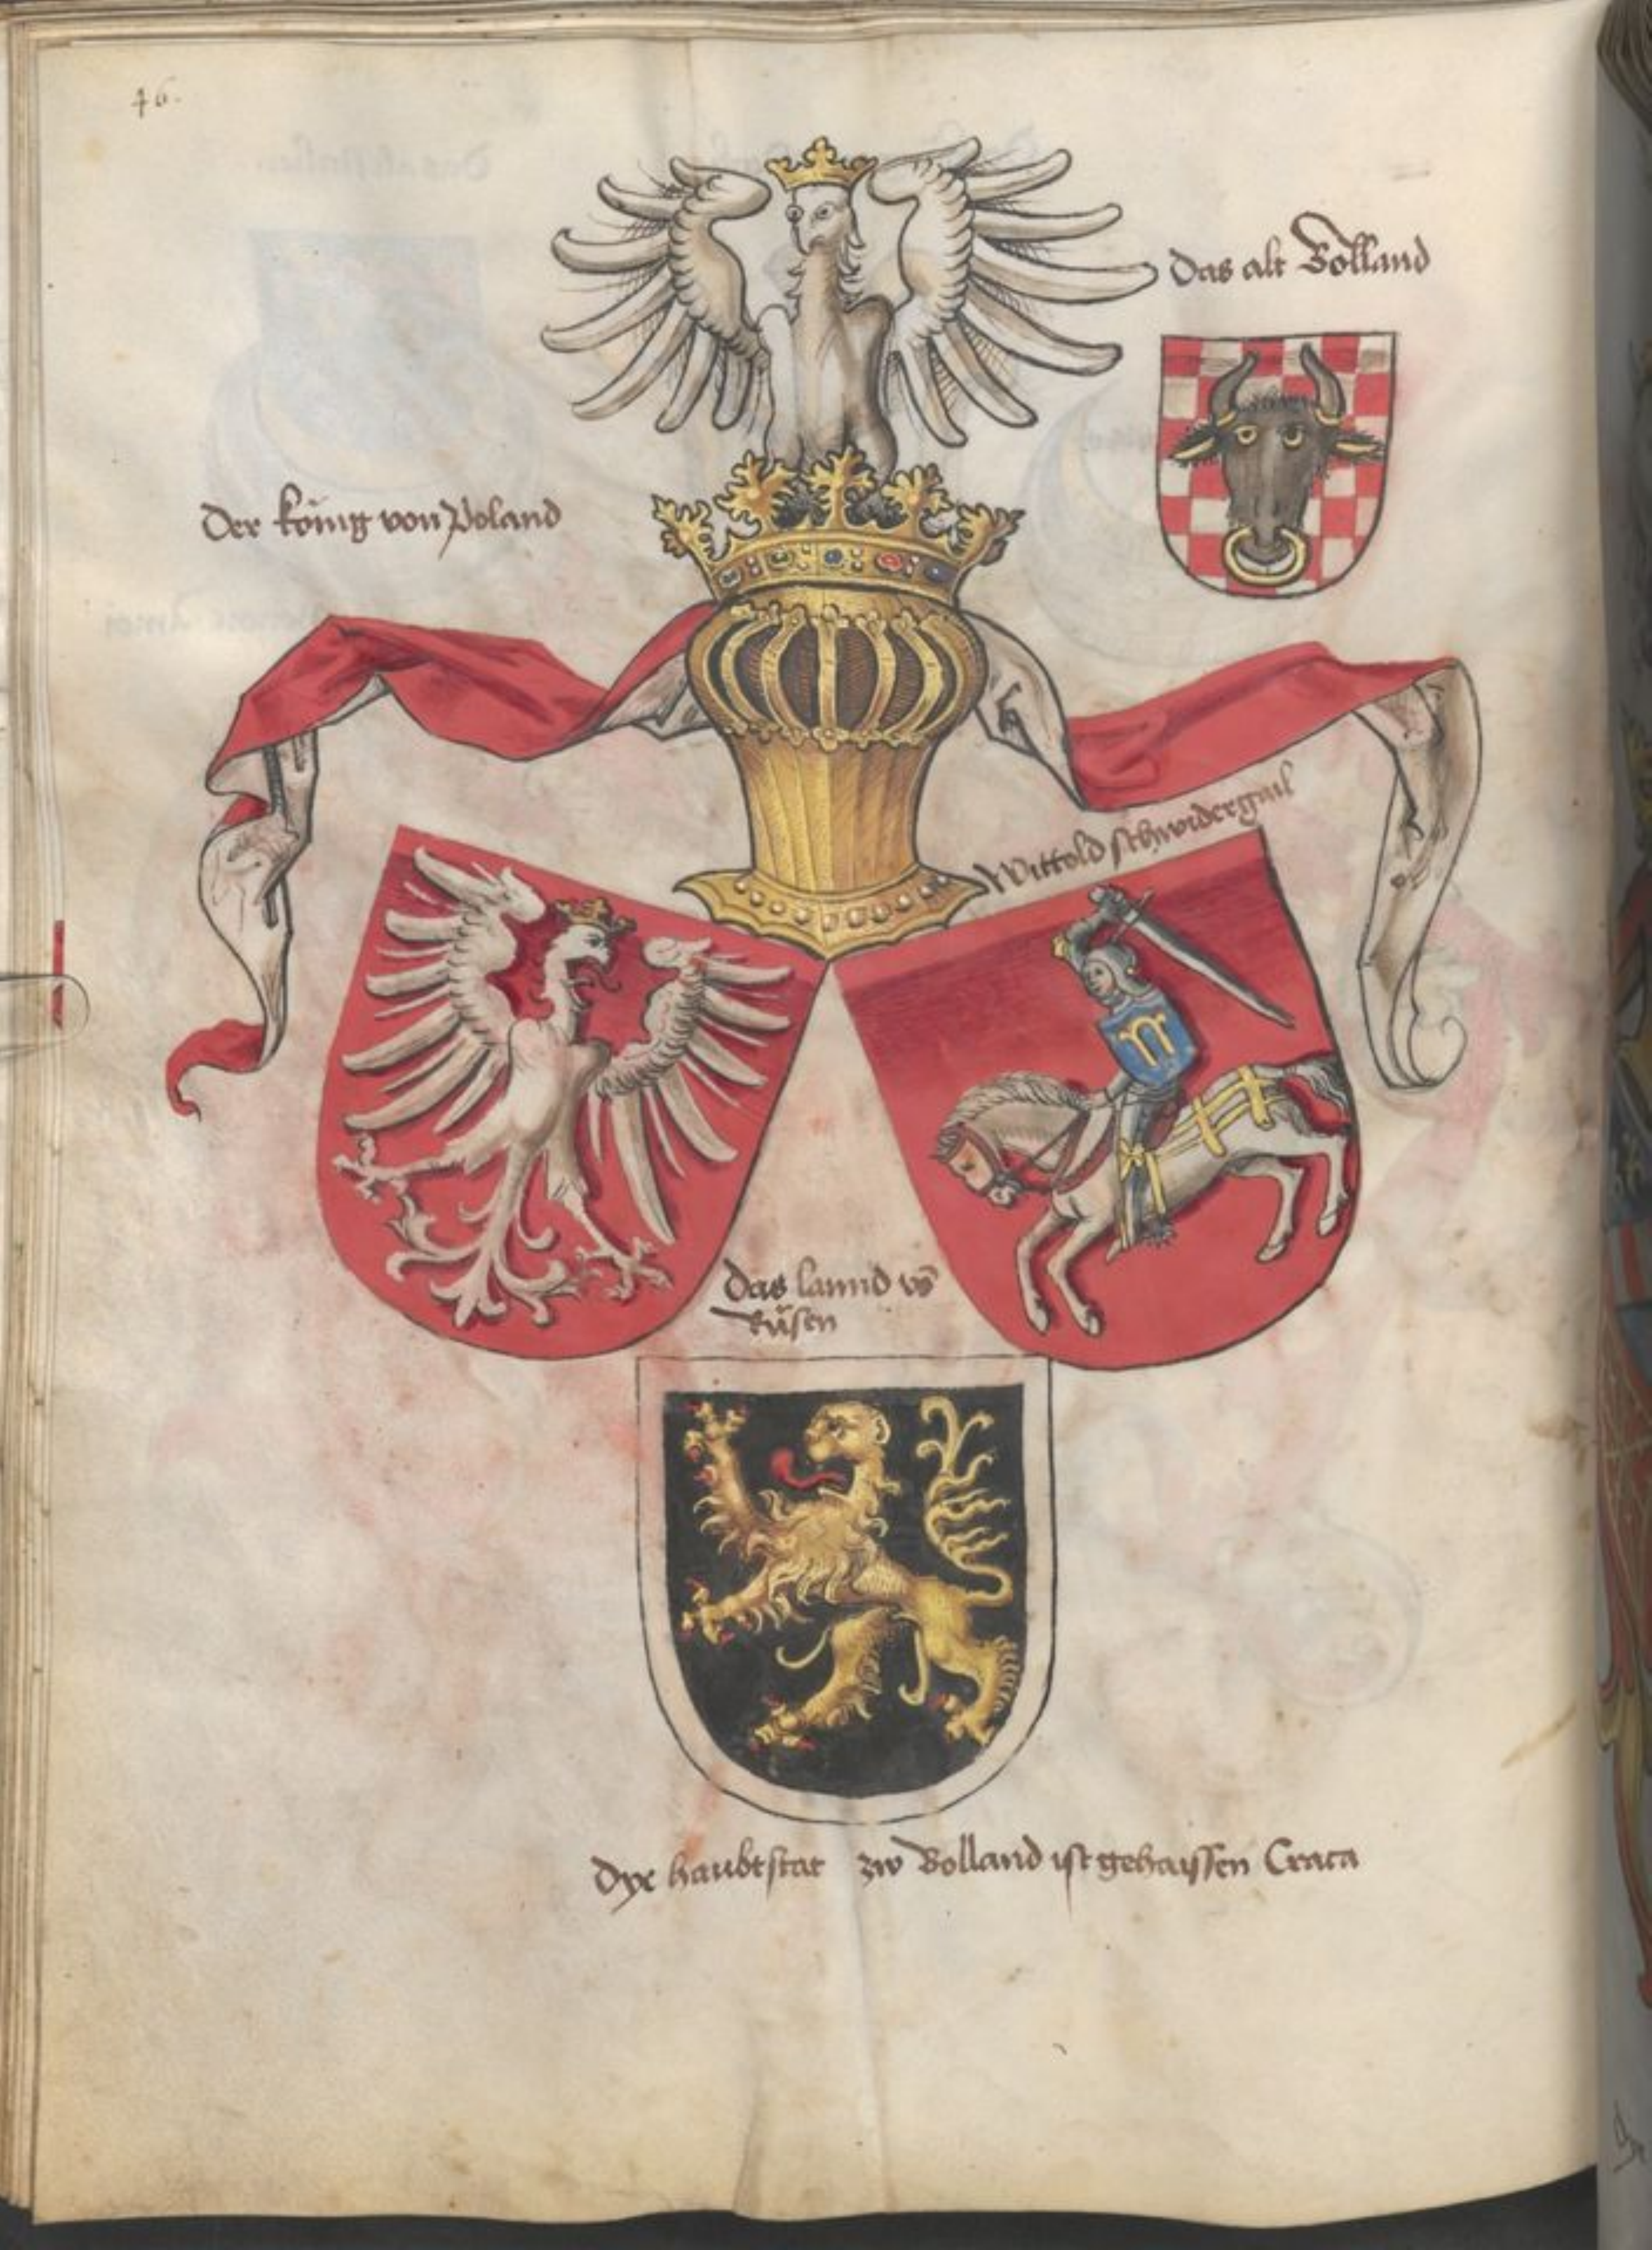 46.
Das alt Bolland
Der König von Poland
Wittold schwidergail
Das lannd vō
Rüsen
Dye haubtstat zw Bolland ist gehaissen Craca